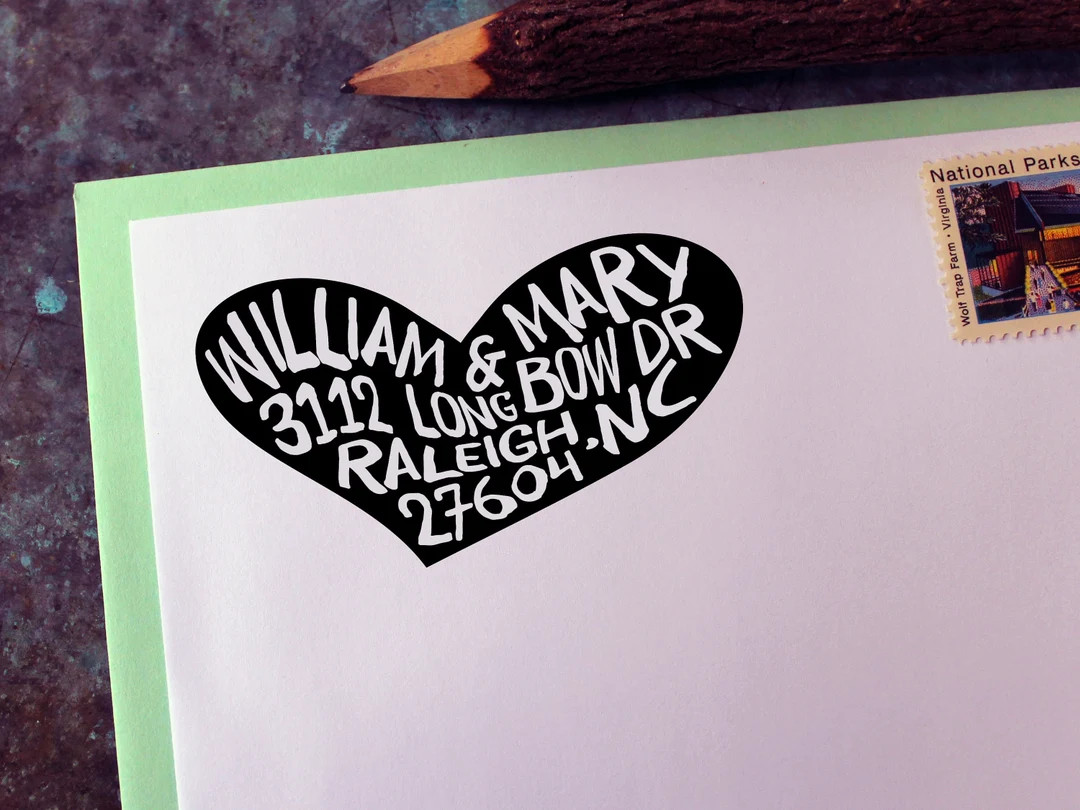 WILLIAM & MARY
3112 LONG BOW DR
RALEIGH, NC
27604
National Parks
Wolf Trap Farm • Virginia